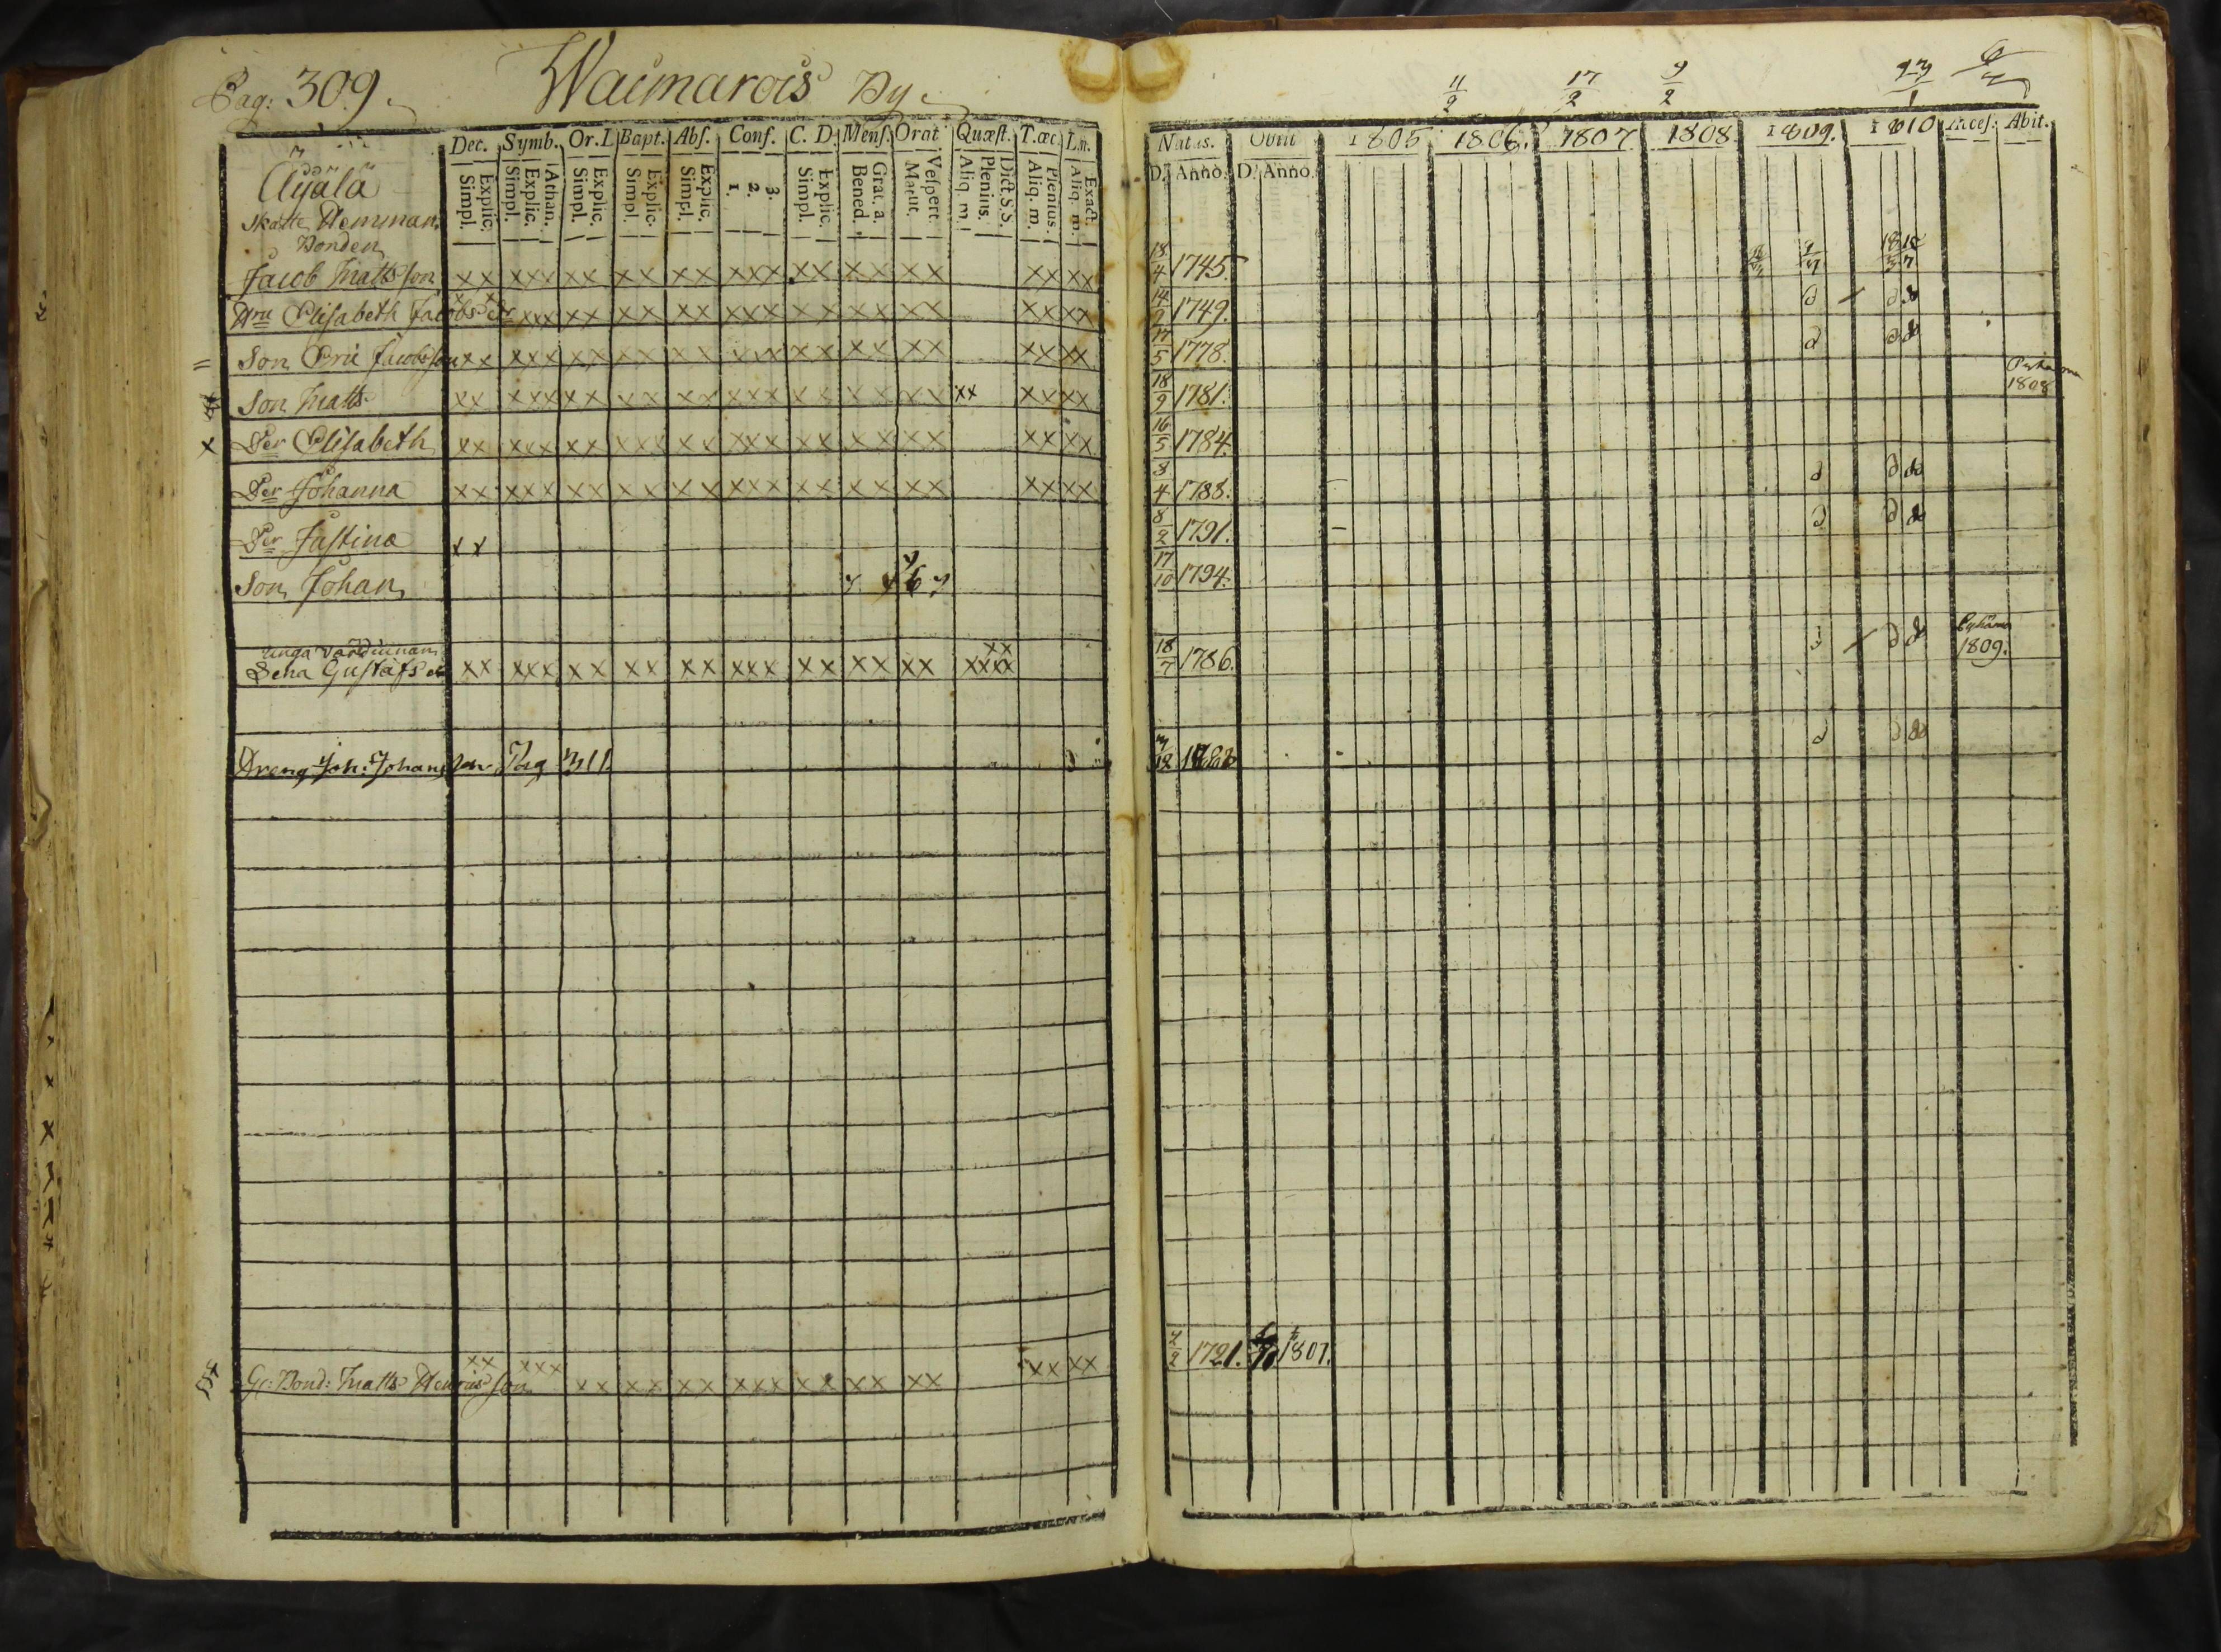 Pag: 309. Waimarois By.
Dec. Symb. Or. D Bapt. Abſ. Conf. C. D. Menſ. Orat Quæſt. T. œc. L. m.
Explic. Simpl. Athan. Explic. Simpl. Explic. Simpl. Explic. Simpl. Explic. Simpl. 3. 2. 1. Explic. Simpl. Grat. a. Bened. Veſpert. Matut. Dict. S.S. Plenius. Aliq. m. Plenius. Aliq. m. Exact. Aliq. m.
Äyälä
Skatte Hemman
Bonden
Jacob Matts son xx xxx xx xx xx xxx xx xx xx xx xx
Hru Elisabeth Jacobs dr xx xxx xx xx xx xxx xx xx xx xx xx
Son Eric Jacobsson xx xxx xx xx xx xxx xx xx xx xx xx
Son Matts xx xxx xx xx xx xxx xx xx xx xx xx xx
x Der Elisabeth xx xxx xx xxx xx xxx xx xx xx xx xx
Der Johanna xx xxx xx xx xx xxx xx xx xx xx xx
Der Justina xx
Son Johan
unga värdinnan xx
Lena Gustafs dr xx xxx xx xx xx xxx xx xx xx xxxx
Dreng Joh: Johansson Pag 311
xx xxx
Gl: Bond: Matts Henricsson xx xx xx xxx xx xx xx xx xx
11/2 17/2 9/2
Natus. Obiit 1805 1806. 1807 1808 1809. 1810 Acceſ. Abit.
D. Anno. D. Anno.
18/4 1745
14/2 1749.
17/5 1778.
18/9 1781. 1808
16/5 1784.
8/4 1788.
8/2 1791.
17/10 1794.
18/7 1786. 1809.
1721. 1807.